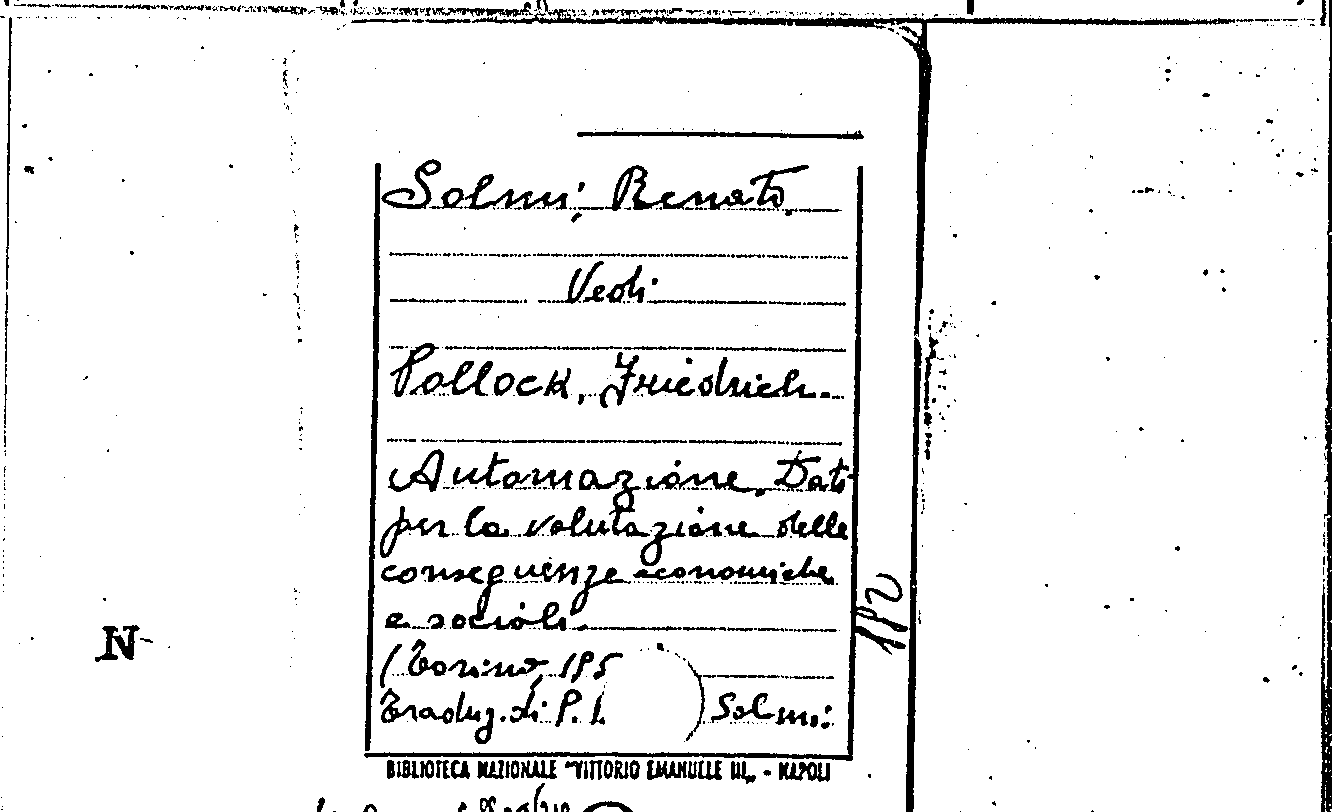 Solmi, Renato.
Vedi
Pollock, Friedrich.
Automazione. Dati
per la valutazione delle
conseguenze economiche
e sociali.
(Torino, 195
Traduz. di P. Solmi
N
BIBLIOTECA NAZIONALE "VITTORIO EMANUELE III„ - NAPOLI